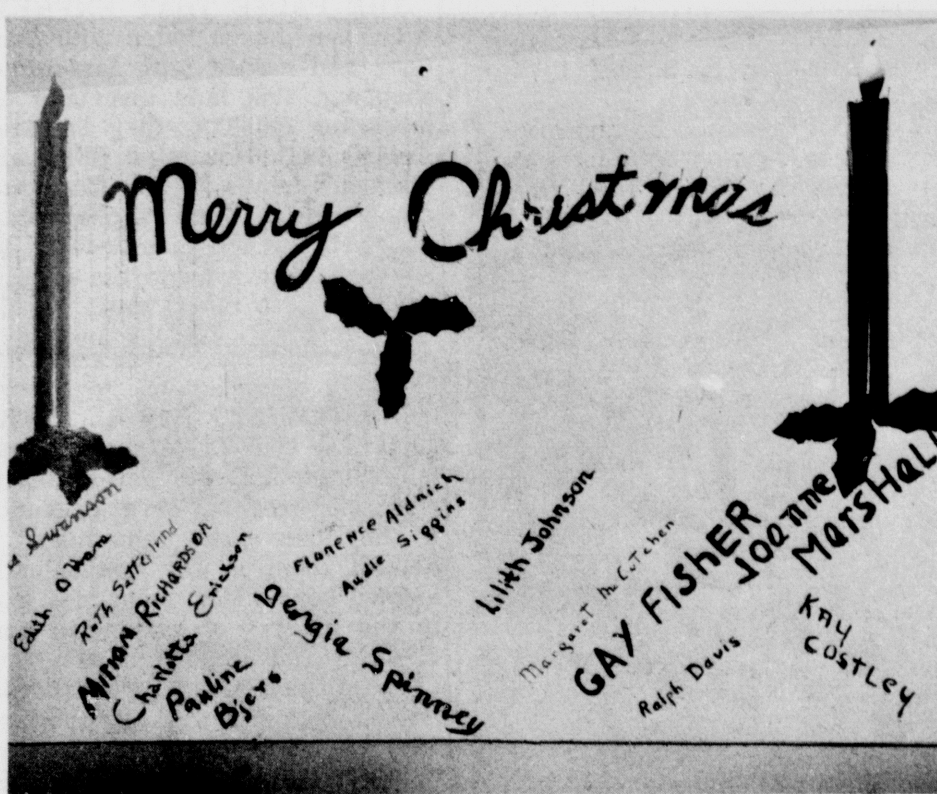 Merry Christmas
Swanson
Edith O'Hara
Ruth Satterlind
Miriam Richardson
Charlotta Erickson
Pauline
Bjers
Georgia Spinney
Florence Aldrich
Audle Siggins
Lilith Johnson
Margaret McCutchen
GAY FISHER
Joanne
Marshall
Ralph Davis
Kay
Costley